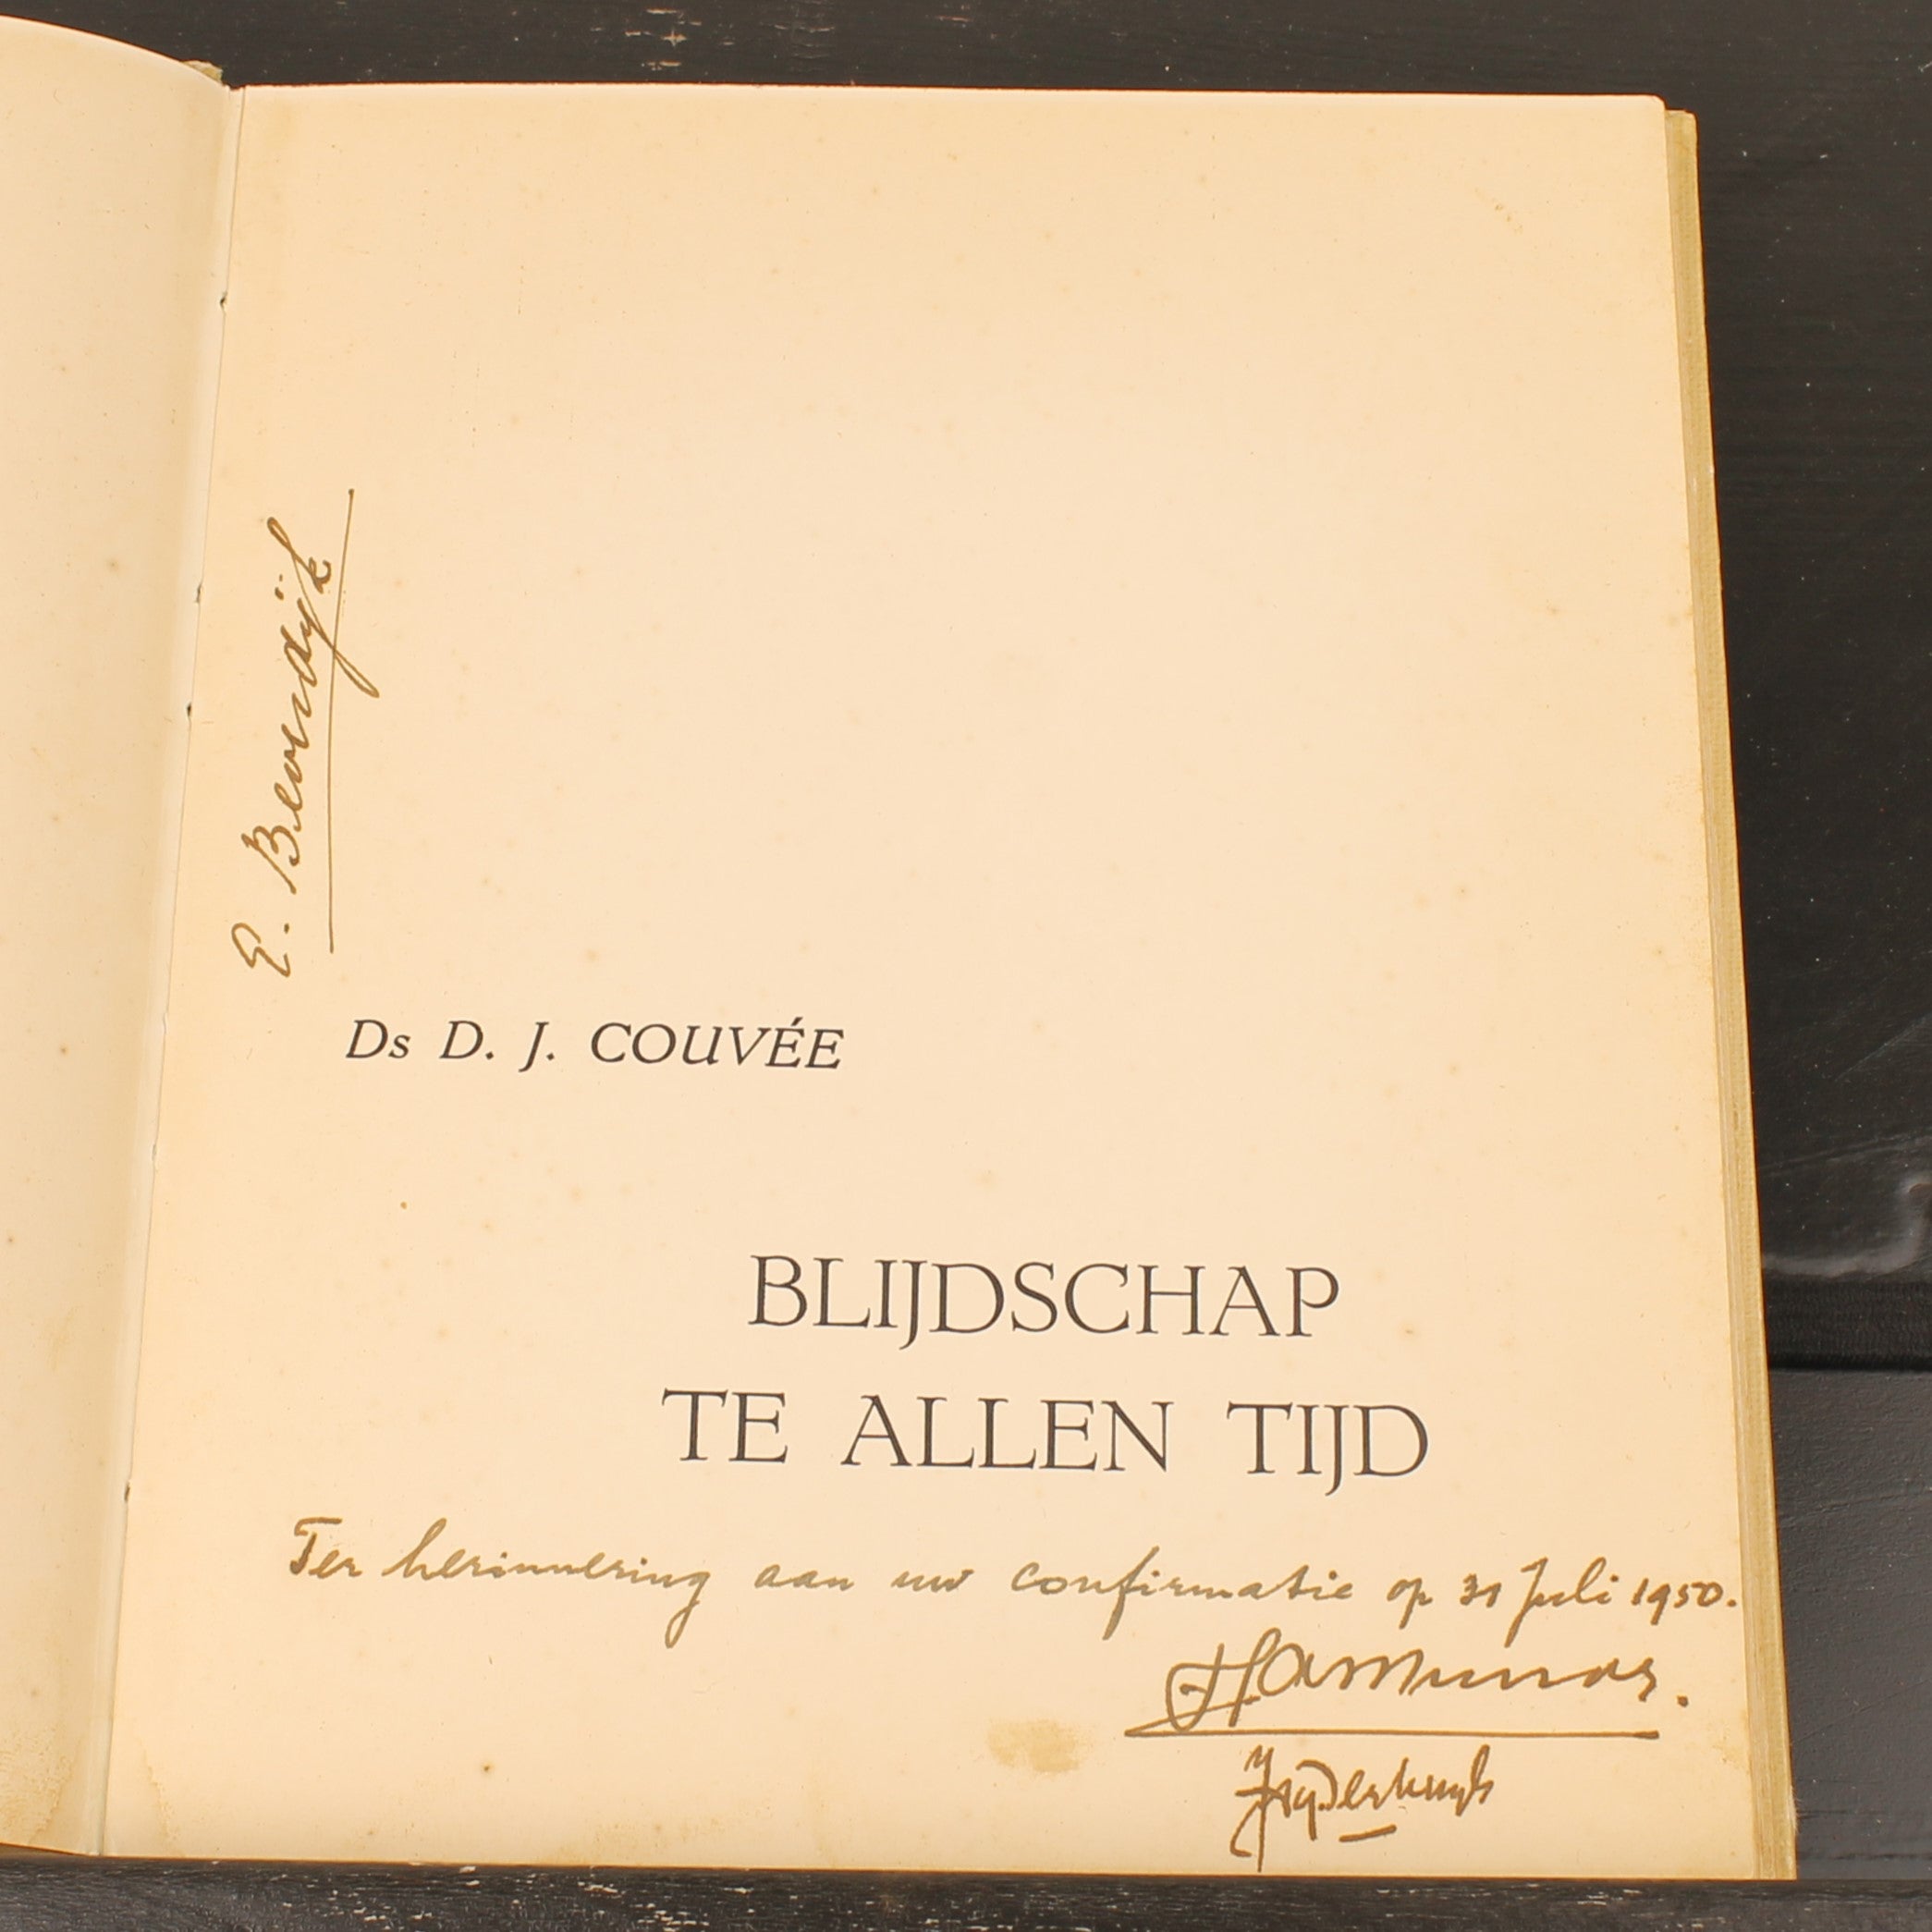 E. Beverdijk
Ds D. J. COUVÉE
BLIJDSCHAP
TE ALLEN TIJD
Ter herinnering aan uw confirmatie op 31 Juli 1950.